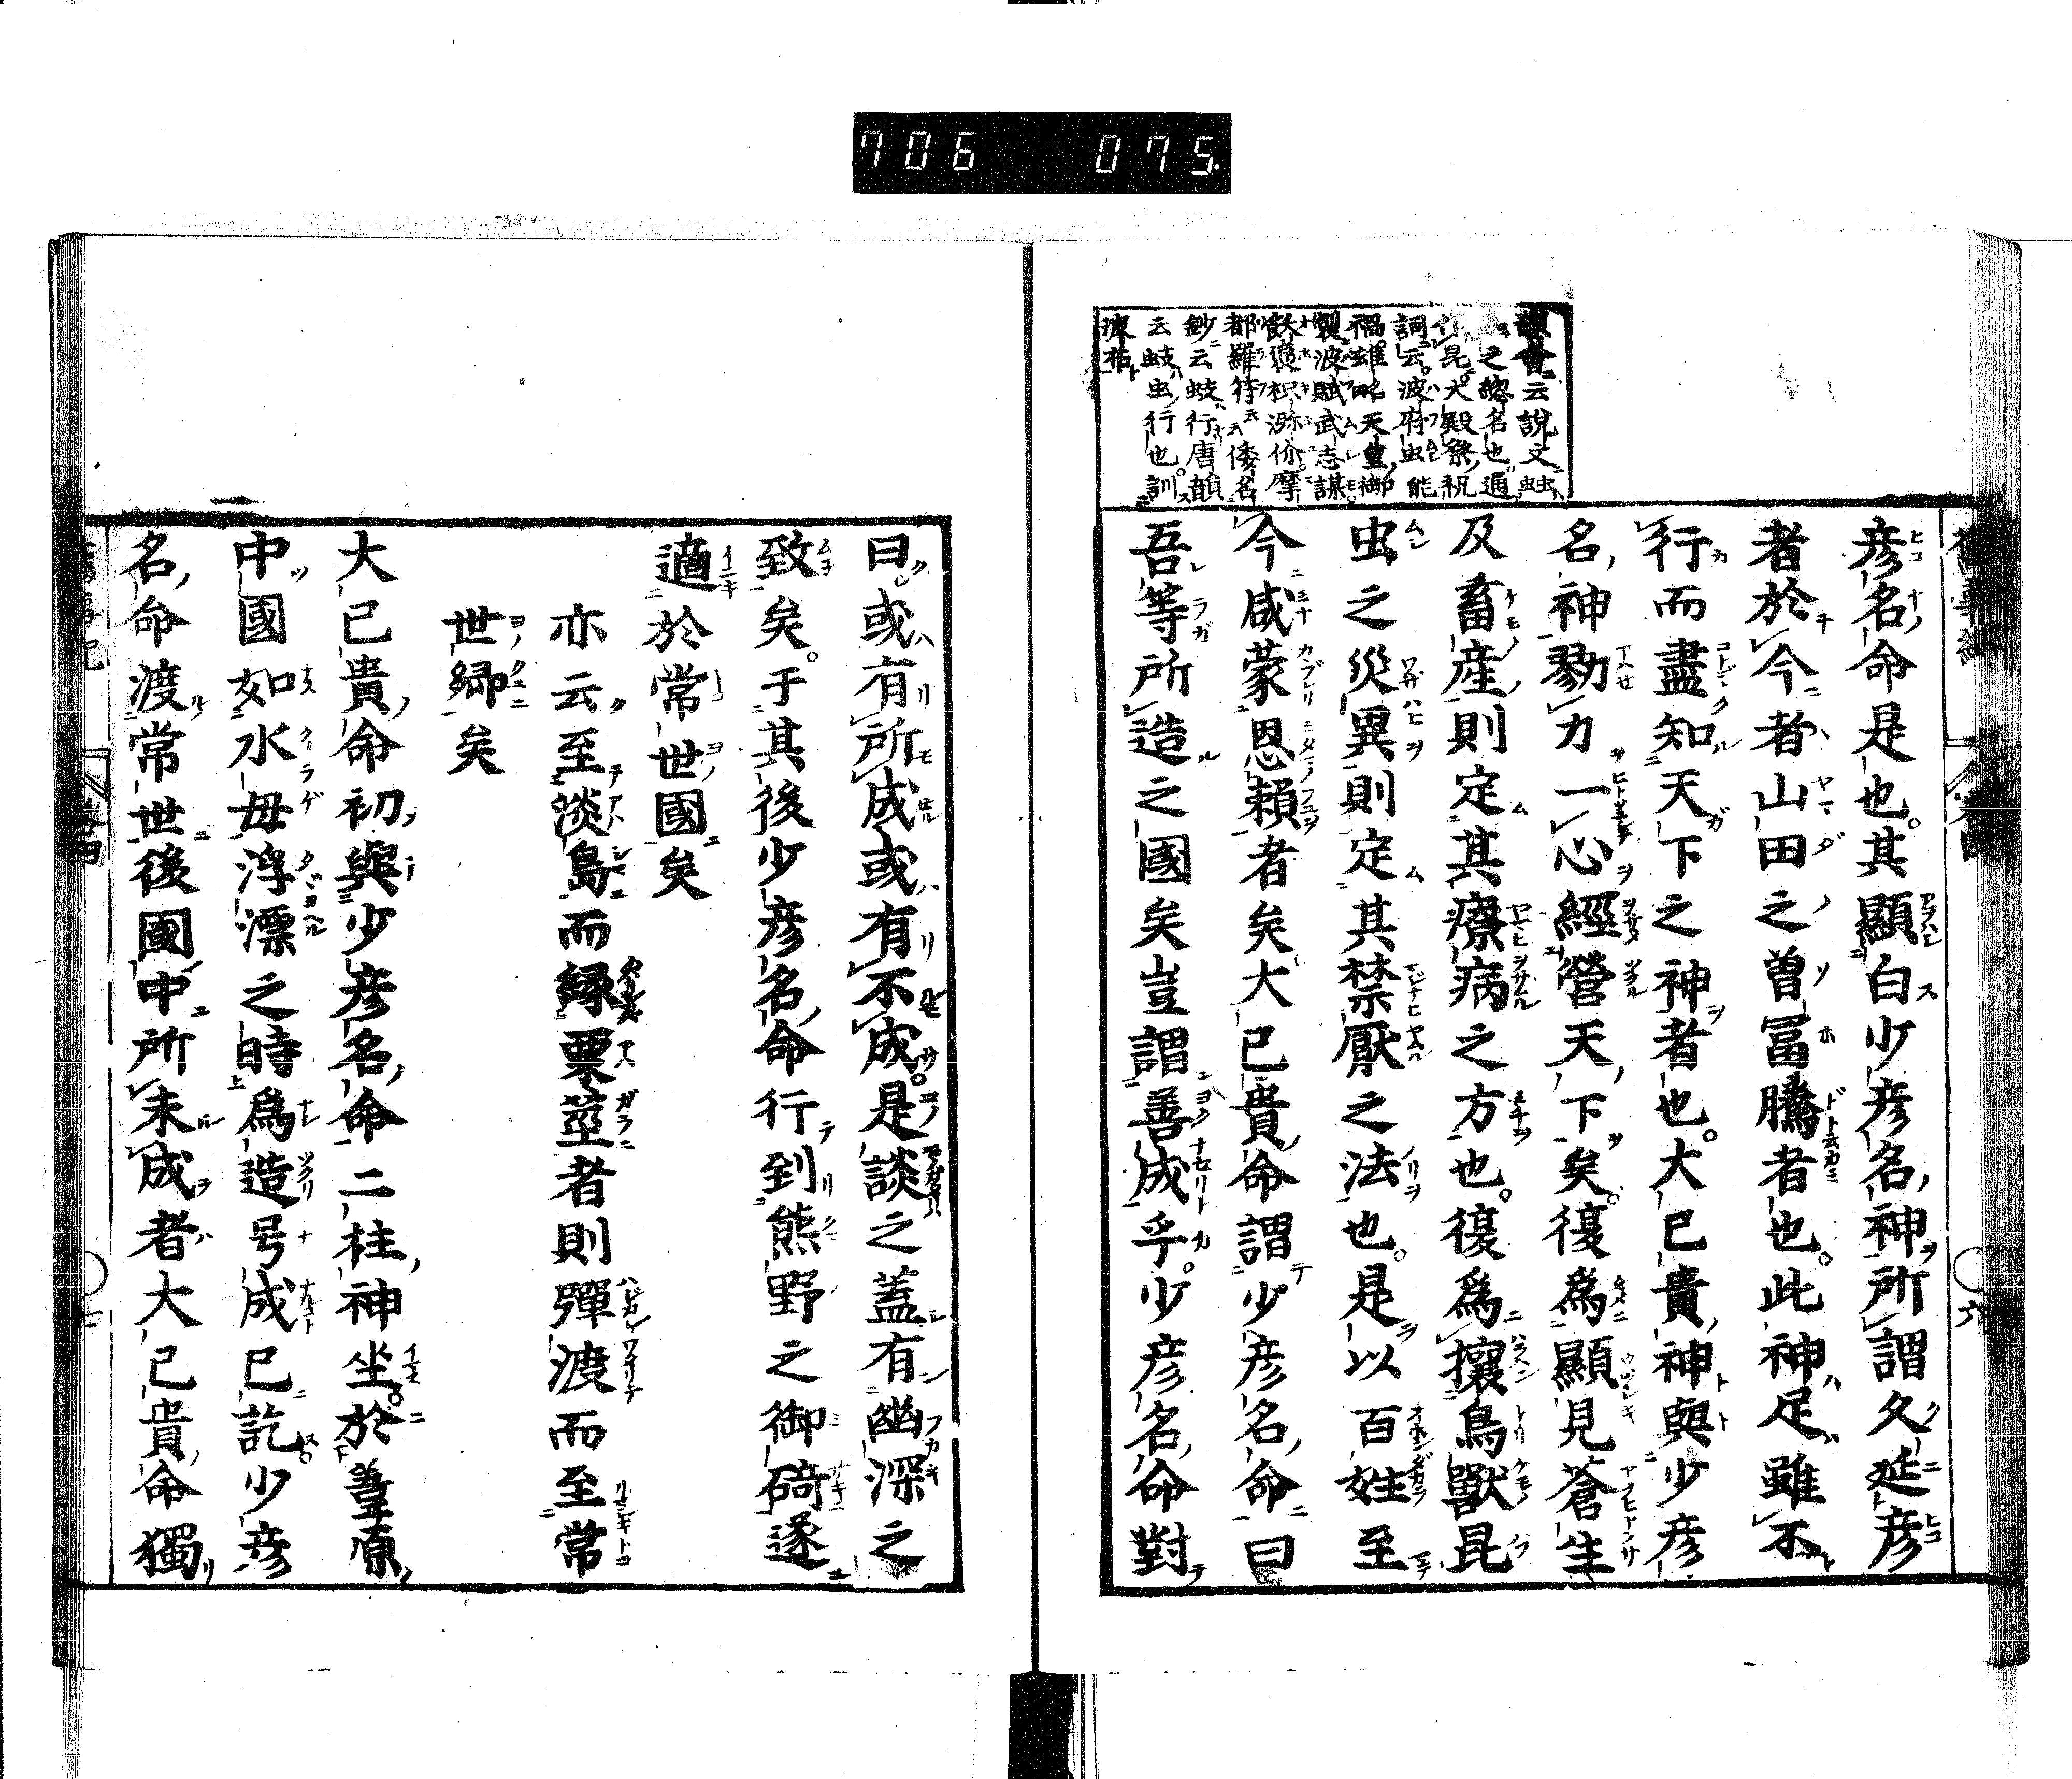 706 075
云說文䖵
之緫名也通
昆大殿祭祝
詞云波府虫能
禍雄略天皇御
製波賦武志謀
飫褒枳瀰伱摩
都羅符云云倭名
鈔云蚑行唐韻
云蚑虫行也訓
彦名命是也其顯白少彦名神所謂久延彦
者於今者山田之曽冨騰者也此神足雖不
行而盡知天下之神者也大已貴神與少彦
名神勠力一心經營天下矣復為顯見蒼生
及畜産則定其療病之方也復為攘鳥獸昆
虫之災異則定其禁厭之法也是以百姓至
今咸蒙恩頼者矣大已貴命謂少彦名命曰
吾等所造之國矣豈謂善成乎少彦名命對
曰或有所成或有不成是談之蓋有幽深之
致矣于其後少彦名命行到熊野之御碕遂
適於常世國矣
亦云至淡島而縁粟莖者則彈渡而至常
世郷矣
大已貴命初與少彦名命二柱神坐於葦原
中國如水母浮漂之時為造号成已訖少彦
名命渡常世後國中所未成者大已貴命獨